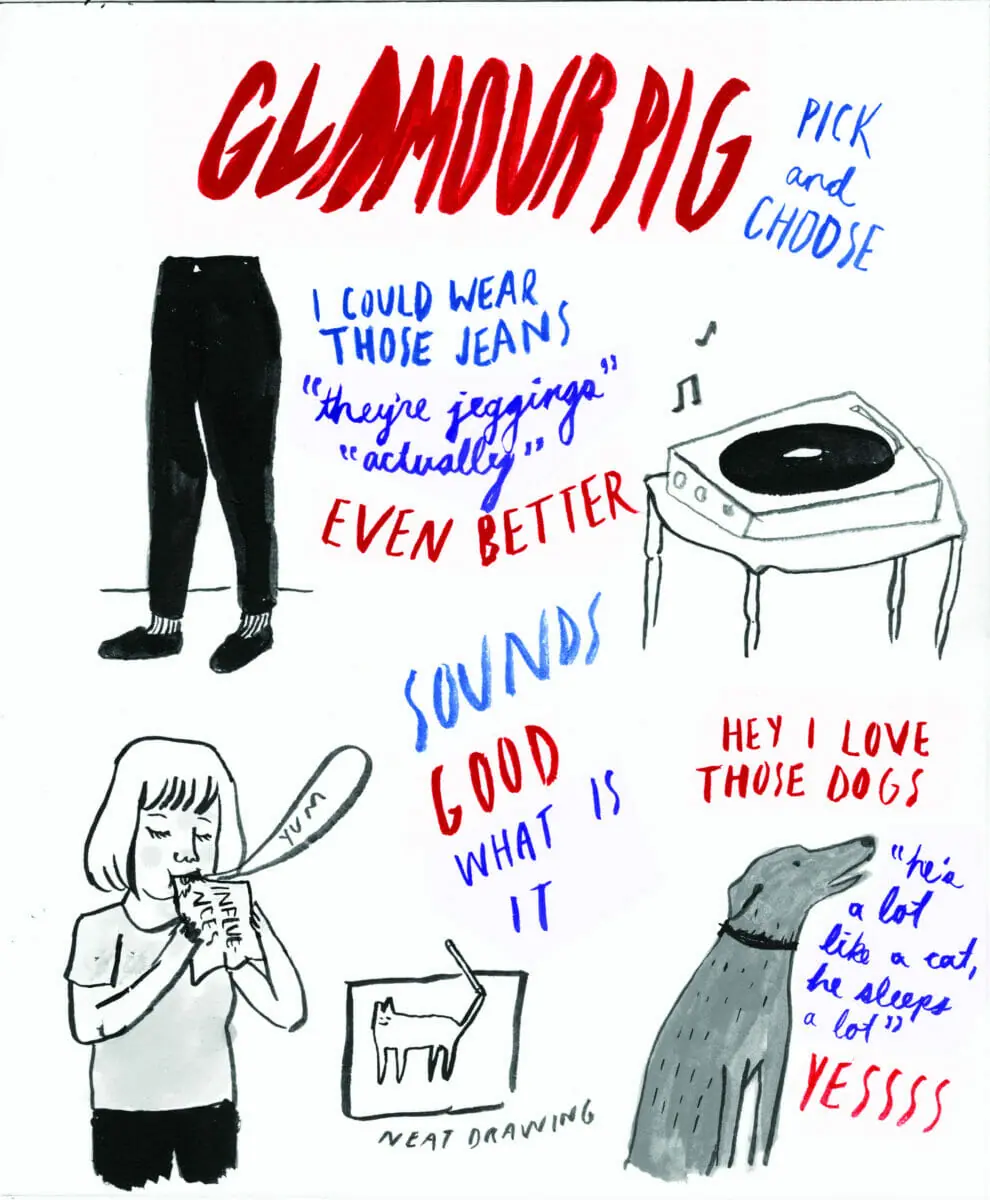 GLAMOUR PIG
PICK
and
CHOOSE
I COULD WEAR
THOSE JEANS
"they're jeggings"
"actually"
EVEN BETTER
SOUNDS
GOOD
WHAT IS
IT
YUM
INFLUE-
NCES
NEAT DRAWING
HEY I LOVE
THOSE DOGS
"he's
a lot
like a cat,
he sleeps
a lot"
YESSSS